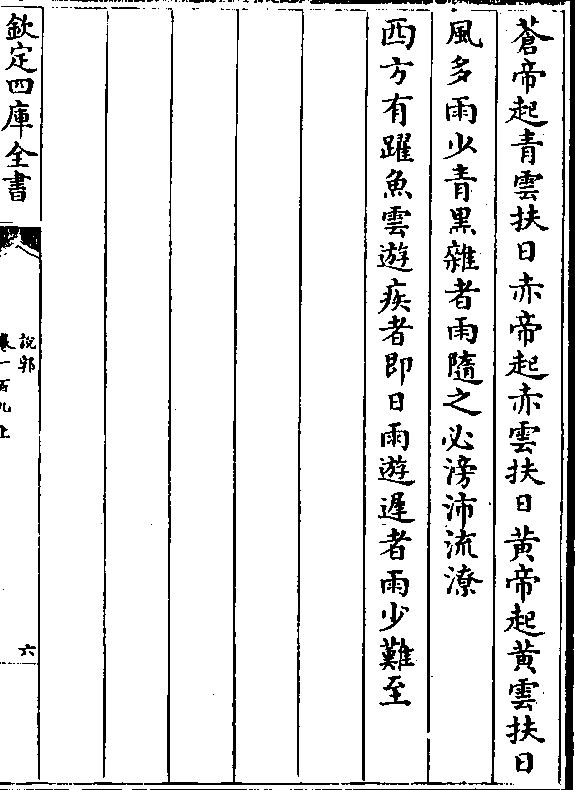 蒼帝起青雲扶日赤帝起赤雲扶日黄帝起黄雲扶日
風多雨少青黒雜者雨隨之必滂沛流潦
西方有躍魚雲遊疾者即日雨遊遲者雨少難至
欽定四庫全書
說郛
卷一百九上
六